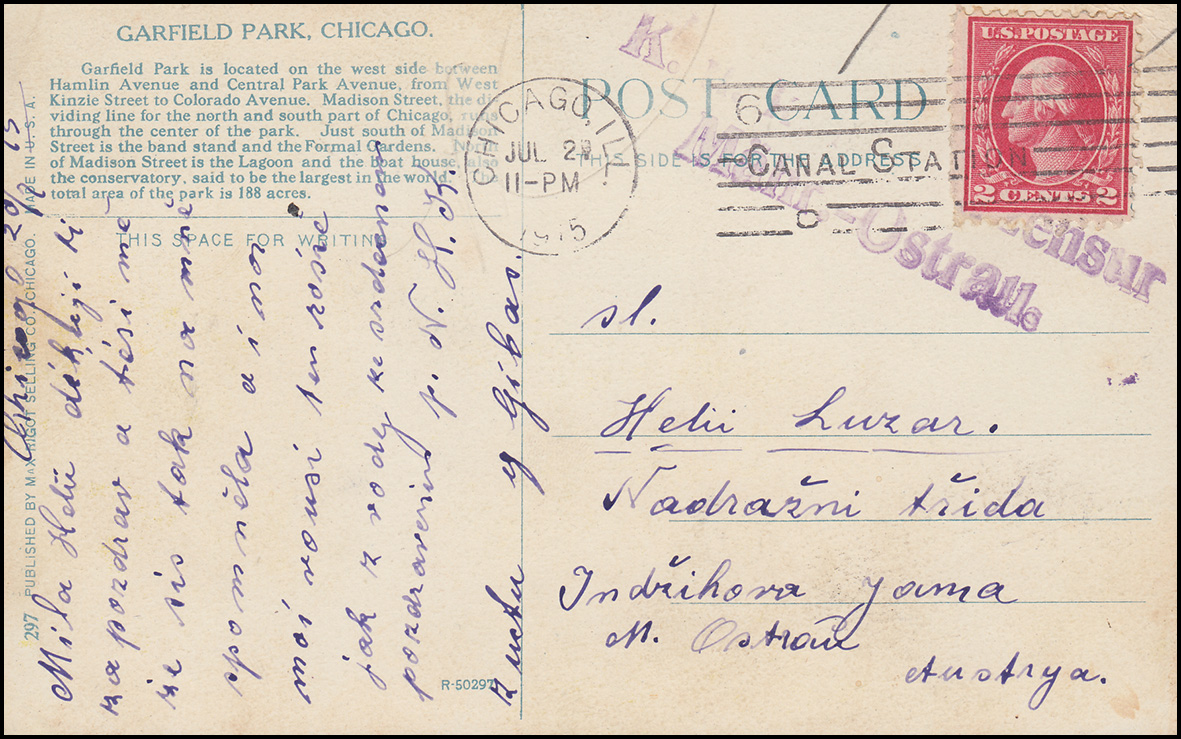 GARFIELD PARK, CHICAGO.
Garfield Park is located on the west side between
Hamlin Avenue and Central Park Avenue, from West
Kinzie Street to Colorado Avenue. Madison Street, the di-
viding line for the north and south part of Chicago, runs
through the center of the park. Just south of Madison
Street is the band stand and the Formal Gardens. North
of Madison Street is the Lagoon and the boat house, also
the conservatory, said to be the largest in the world. The
total area of the park is 188 acres.
THIS SPACE FOR WRITING
297 PUBLISHED BY MAX RIGOT SELLING CO., CHICAGO. MADE IN U.S.A.
R-50297
Chicag 29/7 15
Mila Helii děkuji ti
za pozdrav a těsi mě
že sis tak na mne
spomněla a i
jak z vody ke srdecnem
pozdravenim p. N. H. K.
z uctu y Gibas.
POST CARD
THIS SIDE IS FOR THE ADDRESS
CHICAGO, ILL.
JUL 29
11-PM
1915
6
CANAL STATION
U.S. POSTAGE
2 CENTS 2
K. Zensur
Mähr.-Ostrau.
sl.
Helii Luzar.
Nadražni třida
Indřihova Jama
M. Ostrau
Austrya.